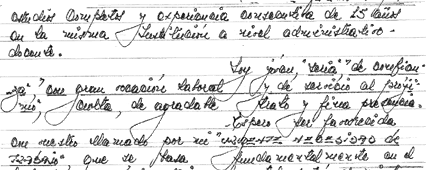 estudios completos y experiencia consecutiva de 15 años
en la misma Institución a nivel administrativo-
docente.
Soy joven, seria, de confian-
za, con gran vocación laboral y de servicio al próji-
mo, culta, de agradable trato y fina presencia.
Espero ser favorecida
con vuestro llamado por mi
que se basa fundamentalmente en el